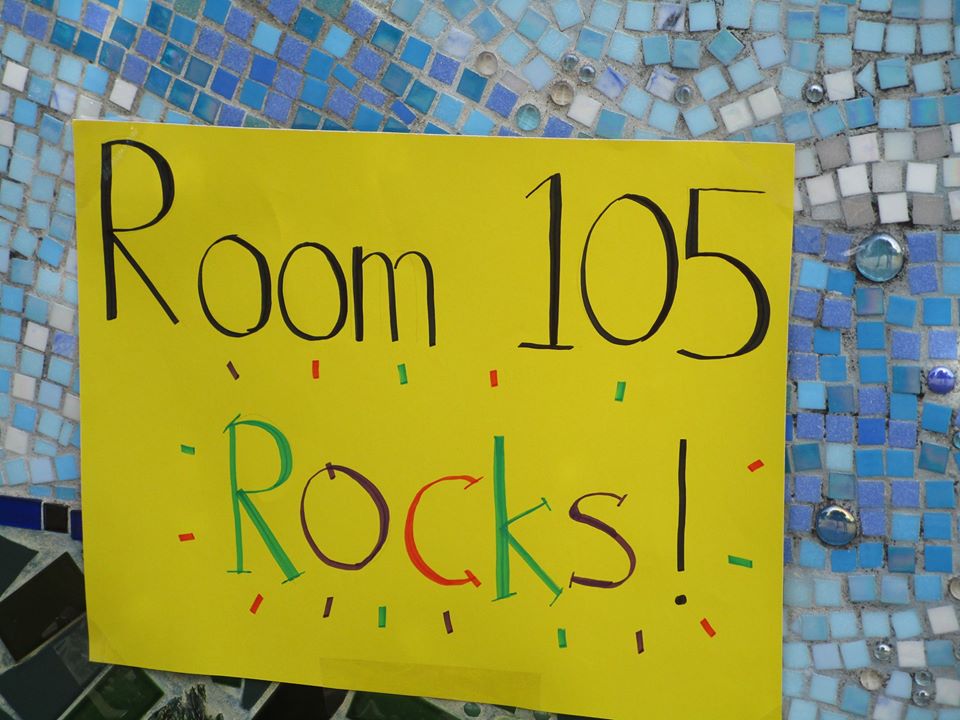 Room 105
Rocks!